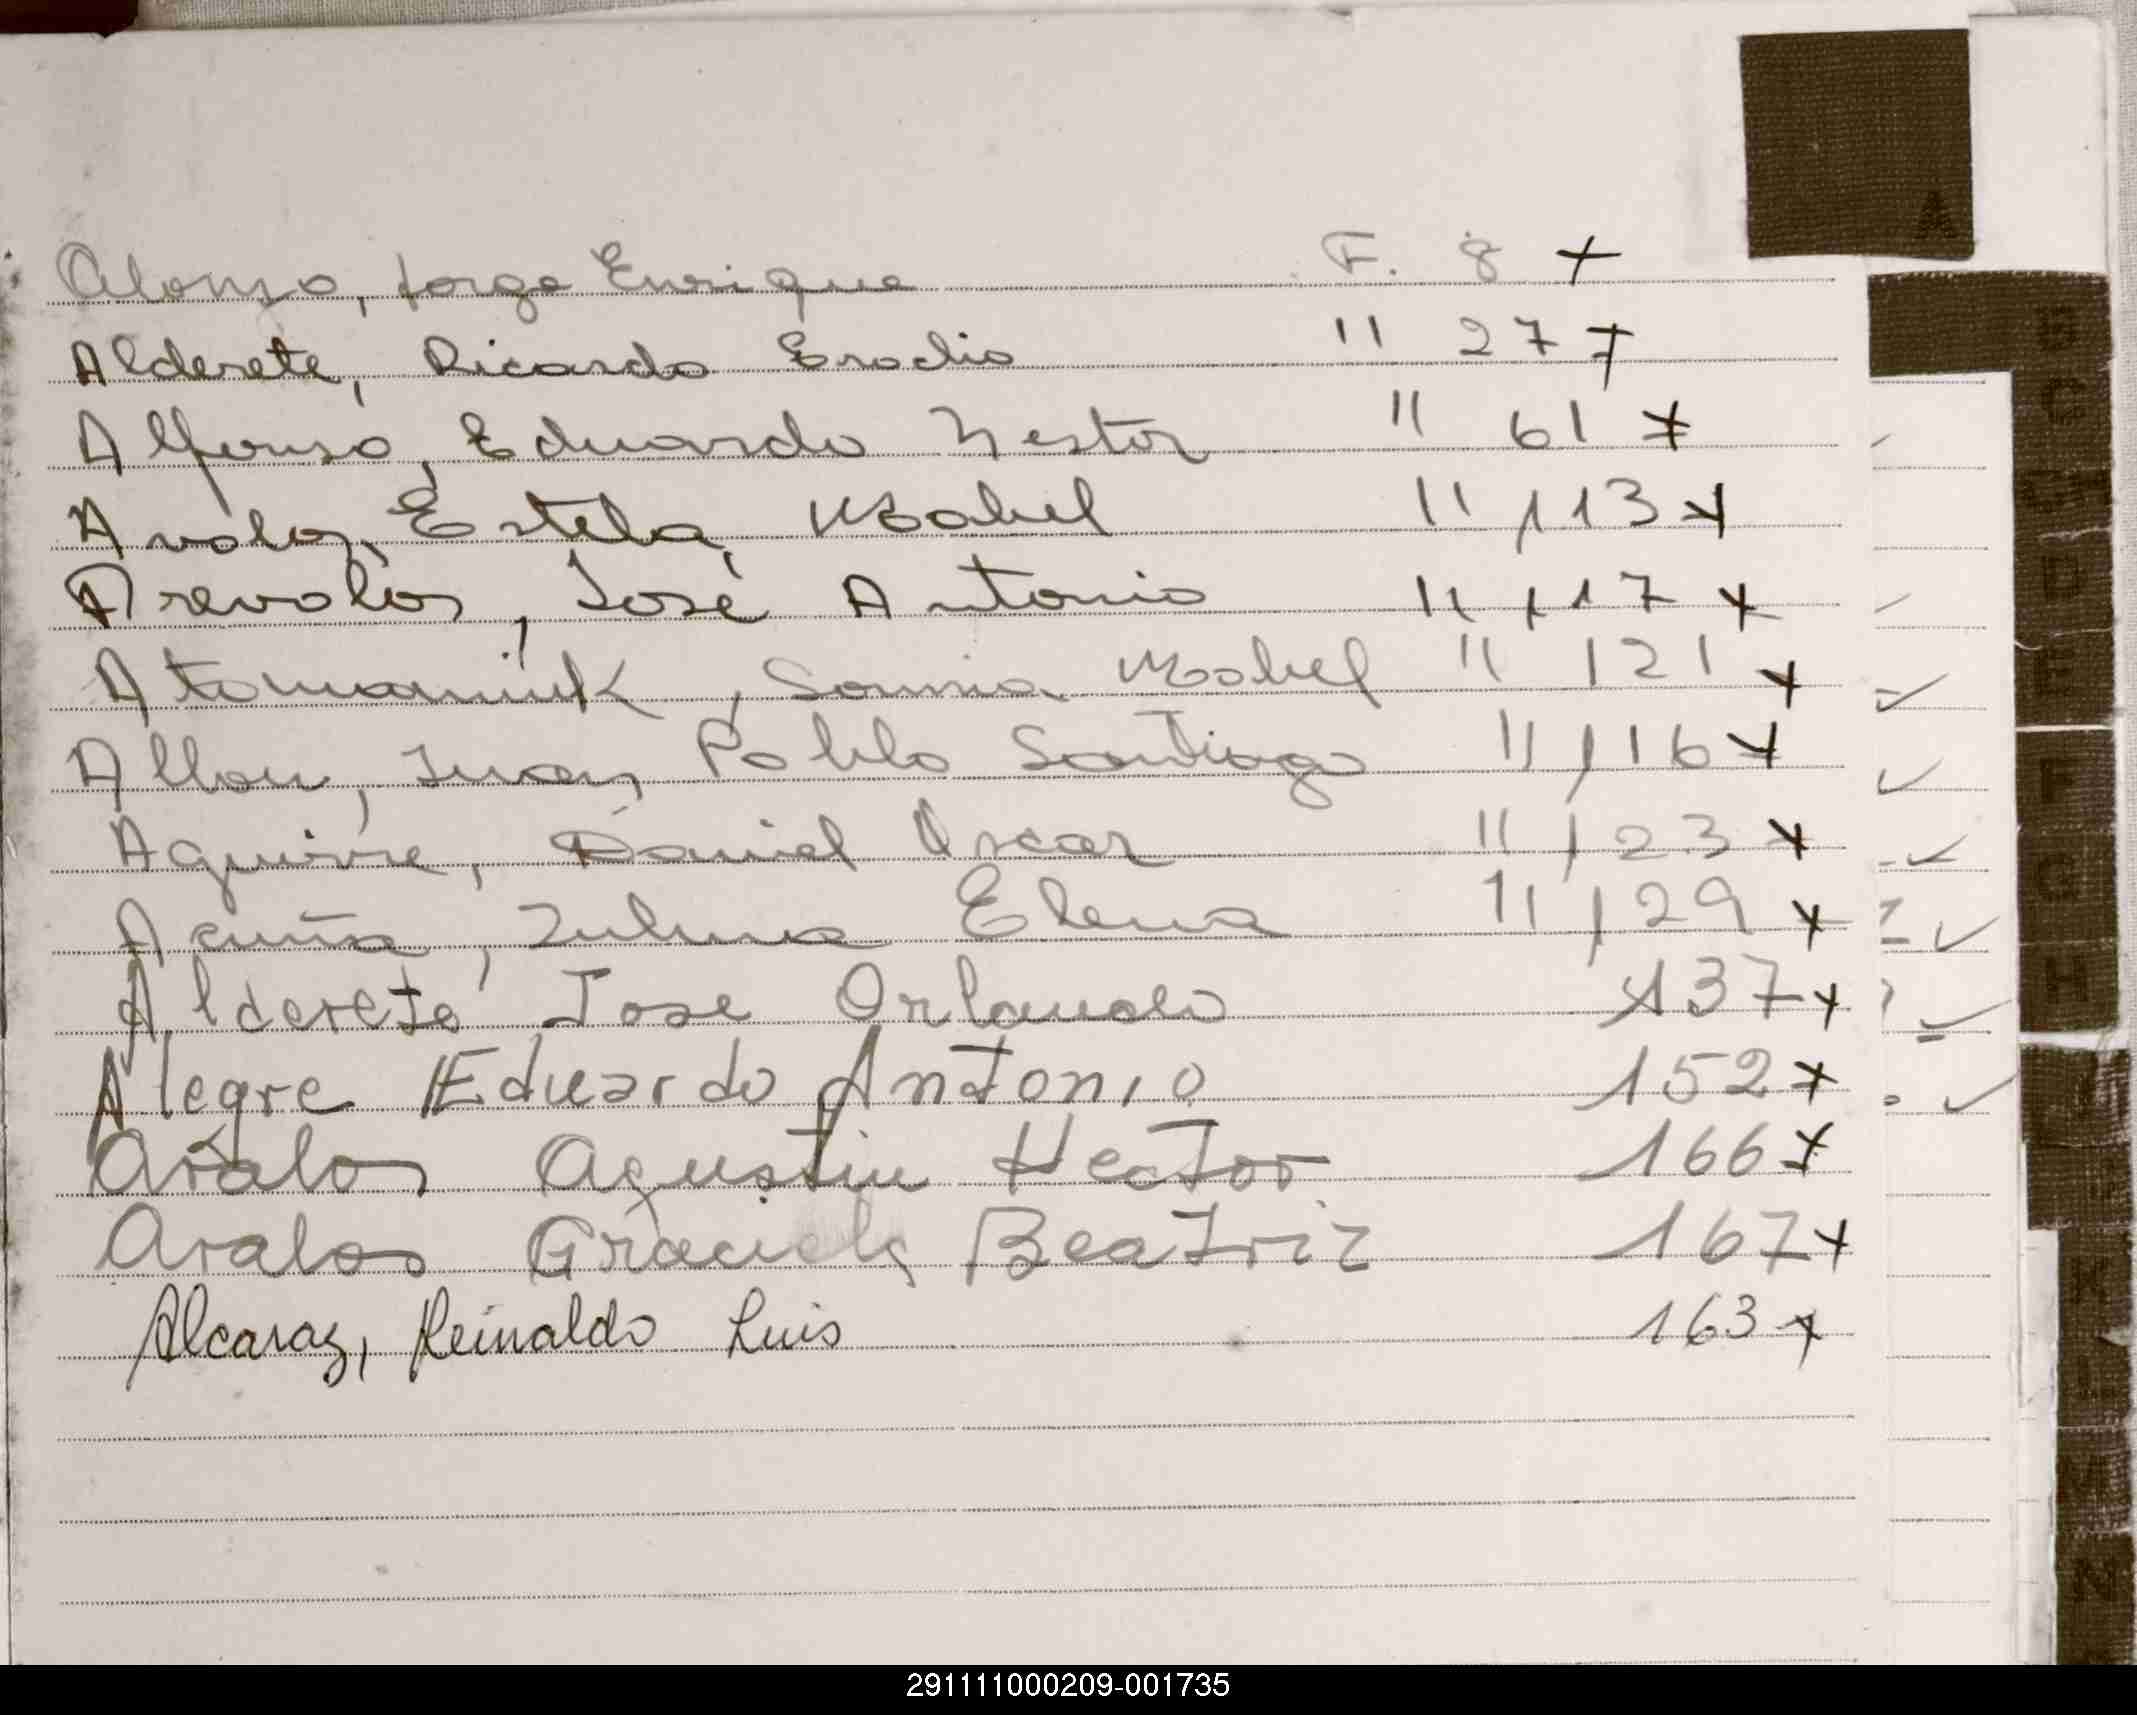 A
Alonso, Jorge Enrique F. 8 +
Alderete, Ricardo Erodio " 27 +
Alfonso, Eduardo Nestor " 61 +
Avalos, Estela Mabel " 113 +
Arevalos, José Antonio " 117 +
Atamaniuk, Sonnia Mabel " 121 +
Allou, Juan Pablo Santiago " 116 +
Aguirre, Daniel Oscar " 123 +
Acuña, Zulma Elena " 129 +
Alderete José Orlando 137 +
Alegre Eduardo Antonio 152 +
Avalos Agustin Hector 166 +
Avalos Graciela Beatriz 167 +
Alcaraz, Reinaldo Luis 163 +
B
C
D
E
F
G
H
K
L
M
N
291111000209-001735